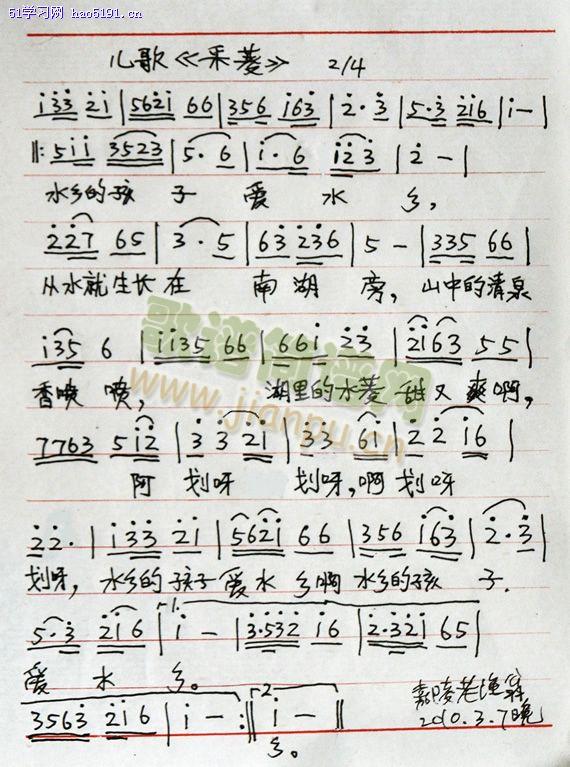 51学习网 hao5191.cn
儿歌《采菱》 2/4
i33 2i | 562i 66 | 356 i63 | 2·3 | 5·3 2i6 | i- |
‖: 5ii 3523 | 5·6 | i·6 | i23 | 2- |
水乡的孩 子 爱 水 乡,
227 65 | 3·5 | 63 236 | 5- | 335 66 |
从水就生长在 南湖 旁, 山中的清泉
i35 6 | ii35 66 | 66i 23 | 2i63 55 |
香喷喷, 湖里的水菱 甜又爽啊,
7763 5i2 | 33 2i | 33 6i | 22 i6 |
阿 划呀 划呀,啊划呀
22· | i33 2i | 562i 66 | 356 i63 | 2·3 |
划呀, 水乡的孩子爱水 乡啊 水乡的孩 子.
5·3 2i6 | 1. i- | 3·532 i6 | 2·32i 65 |
爱 水 乡。
3563 2i6 | i- :‖ 2 i- ‖
乡。
嘉陵老渔翁
2010.3.7晚
歌谱简谱网
www.jianpu.cn